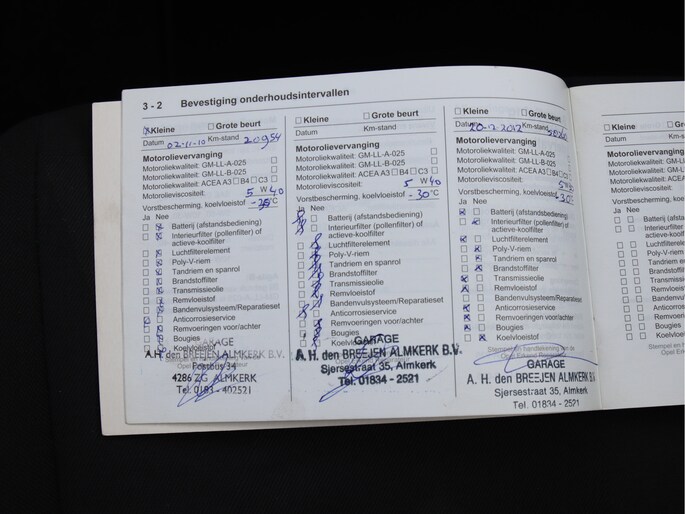 3 - 2 Bevestiging onderhoudsintervallen
Kleine Grote beurt
Datum 02-11-10 Km-stand 20954
Motorolievervanging
Motoroliekwaliteit: GM-LL-A-025
Motoroliekwaliteit: GM-LL-B-025
Motoroliekwaliteit: ACEA A3 B4 C3
Motorolieviscositeit: 5 W 40
Vorstbescherming, koelvloeistof °C
Ja Nee
Batterij (afstandsbediening)
Interieurfilter (pollenfilter) of
actieve-koolfilter
Luchtfilterelement
Poly-V-riem
Tandriem en spanrol
Brandstoffilter
Transmissieolie
Remvloeistof
Bandenvulsysteem/Reparatieset
Anticorrosieservice
Remvoeringen voor/achter
Bougies
Koelvloeistof
GARAGE
A. H. den BREEJEN ALMKERK B.V.
Postbus 34
4286 ZG ALMKERK
Tel. 0183 - 402521
Kleine Grote beurt
Datum Km-stand
Motorolievervanging
Motoroliekwaliteit: GM-LL-A-025
Motoroliekwaliteit: GM-LL-B-025
Motoroliekwaliteit: ACEA A3 B4 C3
Motorolieviscositeit: 5 W 40
Vorstbescherming, koelvloeistof -30 °C
Ja Nee
Batterij (afstandsbediening)
Interieurfilter (pollenfilter) of
actieve-koolfilter
Luchtfilterelement
Poly-V-riem
Tandriem en spanrol
Brandstoffilter
Transmissieolie
Remvloeistof
Bandenvulsysteem/Reparatieset
Anticorrosieservice
Remvoeringen voor/achter
Bougies
GARAGE
A. H. den BREEJEN ALMKERK B.V.
Sjersestraat 35, Almkerk
Tel. 01834 - 2521
Kleine Grote beurt
Datum 20-12-2012 Km-stand
Motorolievervanging
Motoroliekwaliteit: GM-LL-A-025
Motoroliekwaliteit: GM-LL-B-025
Motoroliekwaliteit: ACEA A3 B4 C3
Motorolieviscositeit:
Vorstbescherming, koelvloeistof
Ja Nee
Batterij (afstandsbediening)
Interieurfilter (pollenfilter) of
actieve-koolfilter
Luchtfilterelement
Poly-V-riem
Tandriem en spanrol
Brandstoffilter
Transmissieolie
Remvloeistof
Bandenvulsysteem/Reparatieset
Anticorrosieservice
Remvoeringen voor/achter
Bougies
Koelvloeistof
GARAGE
A. H. den BREEJEN ALMKERK B.V.
Sjersestraat 35, Almkerk
Tel. 01834 - 2521
Kleine
Datum
Motorolievervanging
Motoroliekwaliteit:
Motoroliekwaliteit:
Motoroliekwaliteit:
Motorolieviscositeit:
Vorstbescherming,
Ja Nee
Batterij
Interieurfilter
actieve-
Luchtfilterelement
Poly-V-riem
Tandriem en
Brandstoffilter
Transmissieolie
Remvloeistof
Anticorrosie
Bougies
Koelvloeistof
Stempel en
Opel Erkend